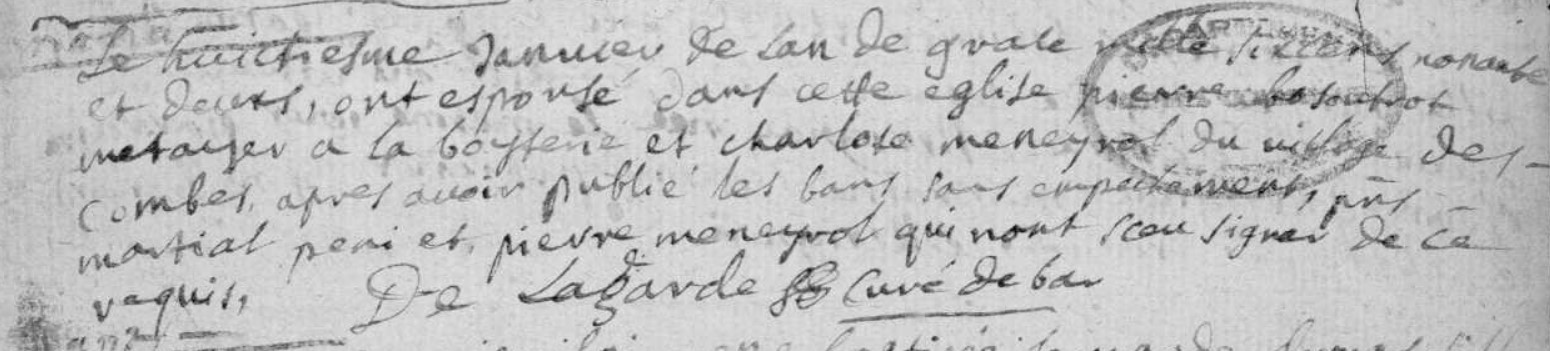 Le huictiesme Janvier de Lan de grace mille six cens nonante
et deuxs, ont esponsé dans cette eglise pierre
metayer a la boysterie et charlote meneyrol du village des-
combes, apres avoir publié les bans sans empechement, pñs
martial peni et pierre meneyrol qui nont sceu signer de ce
requis,
De Lagarde Curé de bar